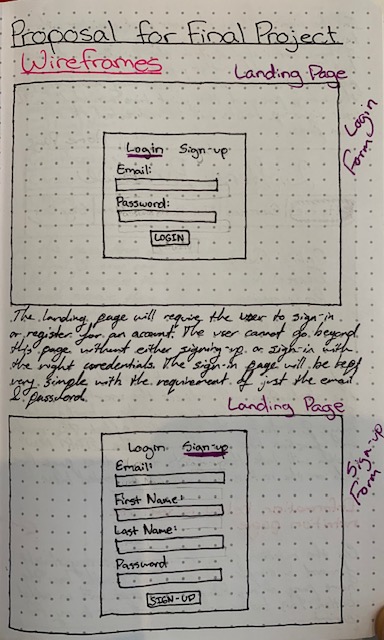 Proposal for Final Project
Wireframes
Landing Page
Login Form
Login Sign-up
Email:
Password:
LOGIN
The landing page will require the user to sign-in
or register for an account. The user cannot go beyond
this page without either signing-up or sign-in with
the right credentials. The sign-in page will be kept
very simple with the requirement of just the email
& password.
Landing Page
Sign-up Form
Login Sign-up
Email:
First Name:
Last Name:
Password
SIGN-UP